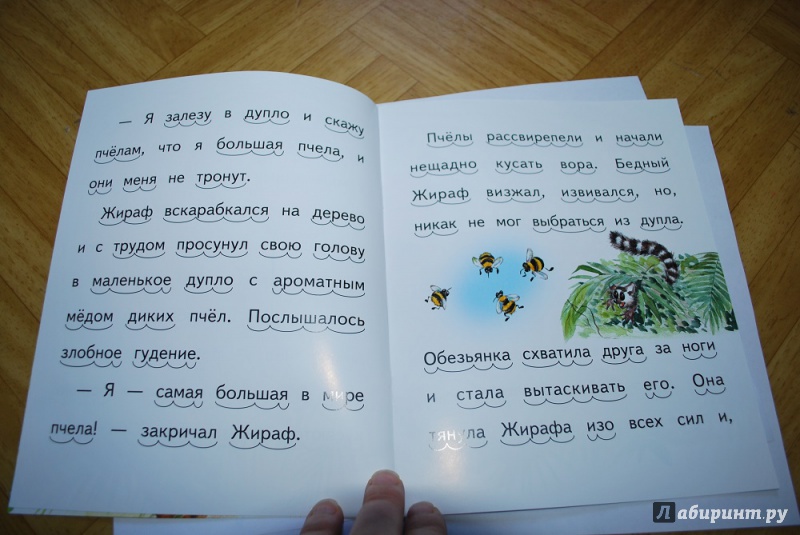 — Я залезу в дупло и скажу
пчёлам, что я большая пчела, и
они меня не тронут.
Жираф вскарабкался на дерево
и с трудом просунул свою голову
в маленькое дупло с ароматным
мёдом диких пчёл. Послышалось
злобное гудение.
— Я — самая большая в мире
пчела! — закричал Жираф.
Пчёлы рассвирепели и начали
нещадно кусать вора. Бедный
Жираф визжал, извивался, но,
никак не мог выбраться из дупла.
Обезьянка схватила друга за ноги
и стала вытаскивать его. Она
тянула Жирафа изо всех сил и,
Лабиринт.ру